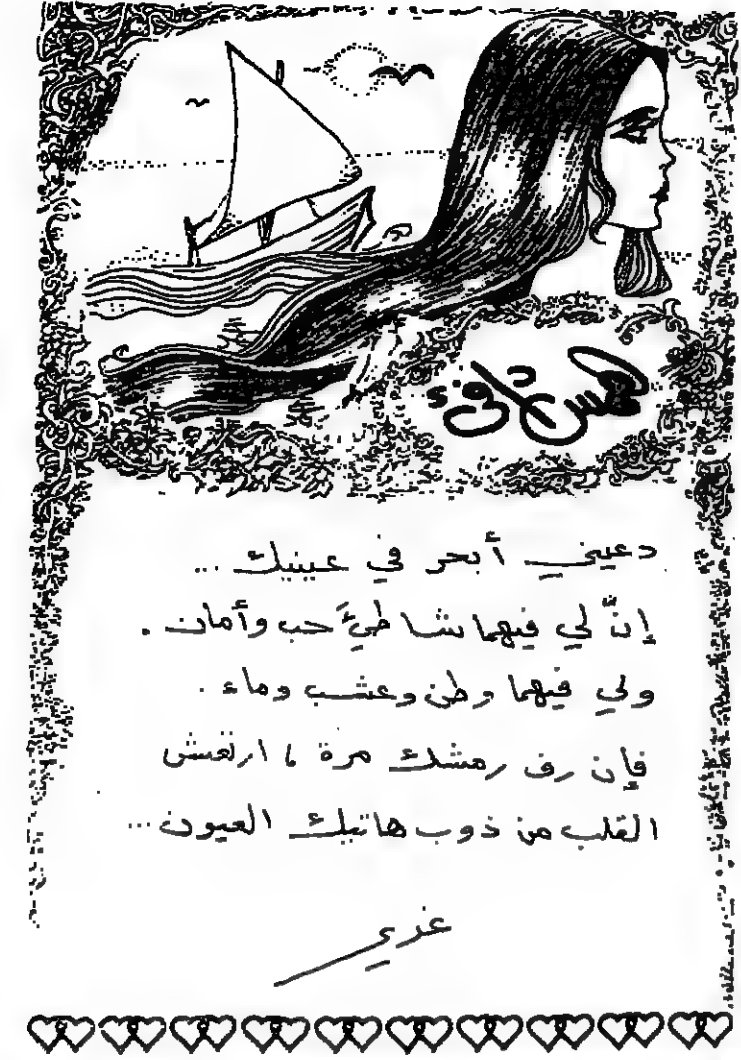 همس دافئ
دعيني أبحر في عينيك ...
إنَّ لي فيهما شاطئَ حب وأمان .
ولي فيهما وطن وعشب وماء .
فإن رف رمشك مرة ، ارتعش
القلب من ذوب هاتيك العيون ...